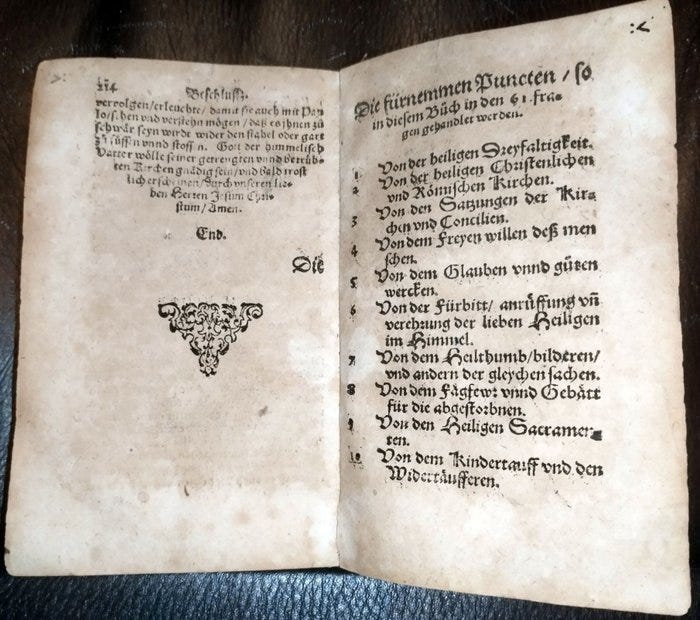 224
Beschluss.
vervolgen/erleuchte/ damit sie auch mit Pau
lo/s hen vnd verstehn mögen/ daß es jhnen zů
schwär seyn wirdt wider den stahel oder gart
zů lüffen vnnd stoff n. Gott der himmelisch
Vatter wölle seiner getrengten vnnd betrüb-
ten Kirchen gnädig sein/vnd bald trost
lich erscheinen/durch vnseren lie-
ben Herren Jesum Chri-
stum/Amen.
End.
Die
Die fürnemmen Puncten / so
in diesem Bůch in den 61. fra-
gen gehandlet werden.
1 Von der heiligen Dreyfaltigkeit.
2 Von der heiligen Christenlichen
vnd Römischen Kirchen.
3 Von den Satzungen der Kir-
chen vnd Concilien.
4 Von dem Freyen willen deß men
schen.
5 Von dem Glauben vnnd gůten
wercken.
6 Von der Fürbitt/ anrüffung vñ
verehrung der lieben Heiligen
im Himmel.
7 Von dem Heilthumb/bilderen/
vnd andern der gleychen sachen.
8 Von dem Fägfewr vnnd Gebätt
für die abgestorbnen.
9 Von den Heiligen Sacramen-
ten.
10 Von dem Kindertauff vnd den
Widertäufferen.